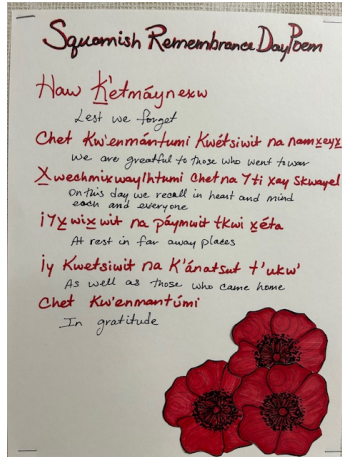 Squamish Remembrance Day Poem
Haw K̲'etmáynexw
Lest we forget
Chet Kw'enmántumi Kwétsiwit na namx̲eyx̲
We are greatful to those who went to war
X̲wechmixwaylhtumi Chet na 7ti xay Skwayel
On this day we recall in heart and mind
each and everyone
i7x̲wix̲wit na páymwit tkwi x̲éta
At rest in far away places
iy Kwetsiwit na K'ánatsut t'ukw'
As well as those who came home
Chet Kw'enmantúmi
In gratitude